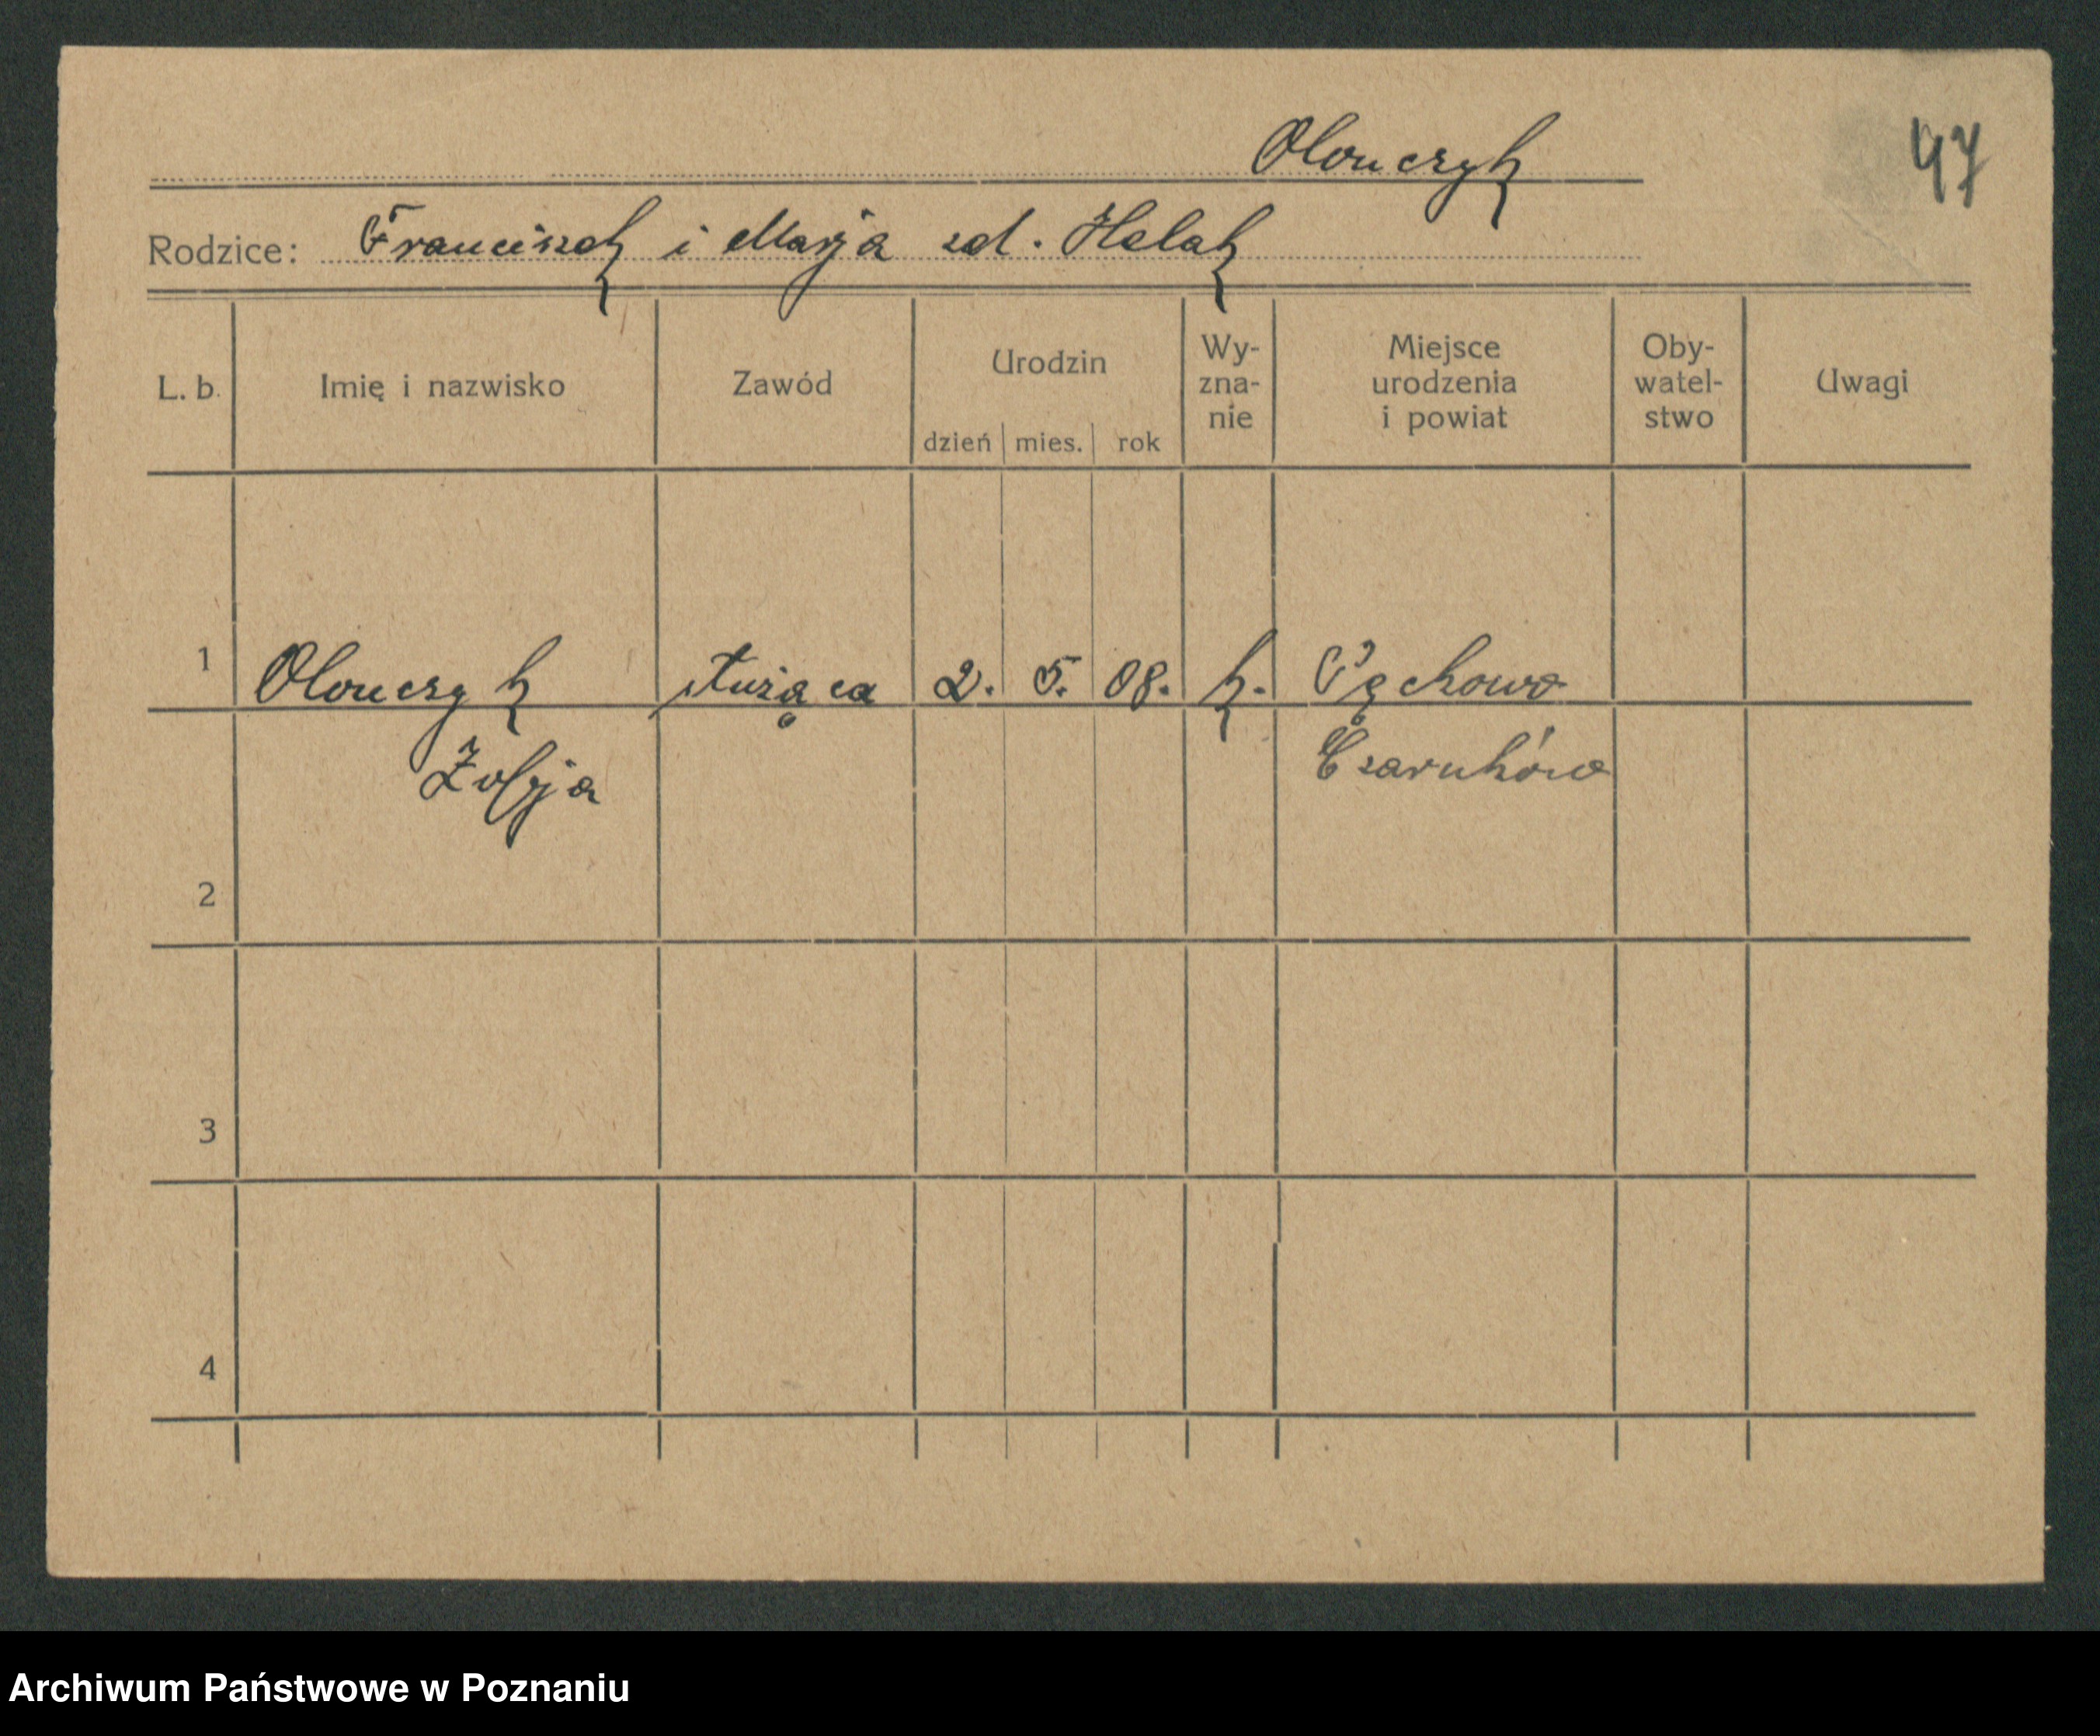 Olonczyk
47
Rodzice: Franciszek i Marja zd. Halak
L. b. Imię i nazwisko Zawód Urodzin dzień mies. rok Wy-zna-nie Miejsce urodzenia i powiat Oby-watel-stwo Uwagi
1 Olonczyk służąca 2. 5. 08. k. Pęckowo
Zofja Czarnków
2
3
4
Archiwum Państwowe w Poznaniu